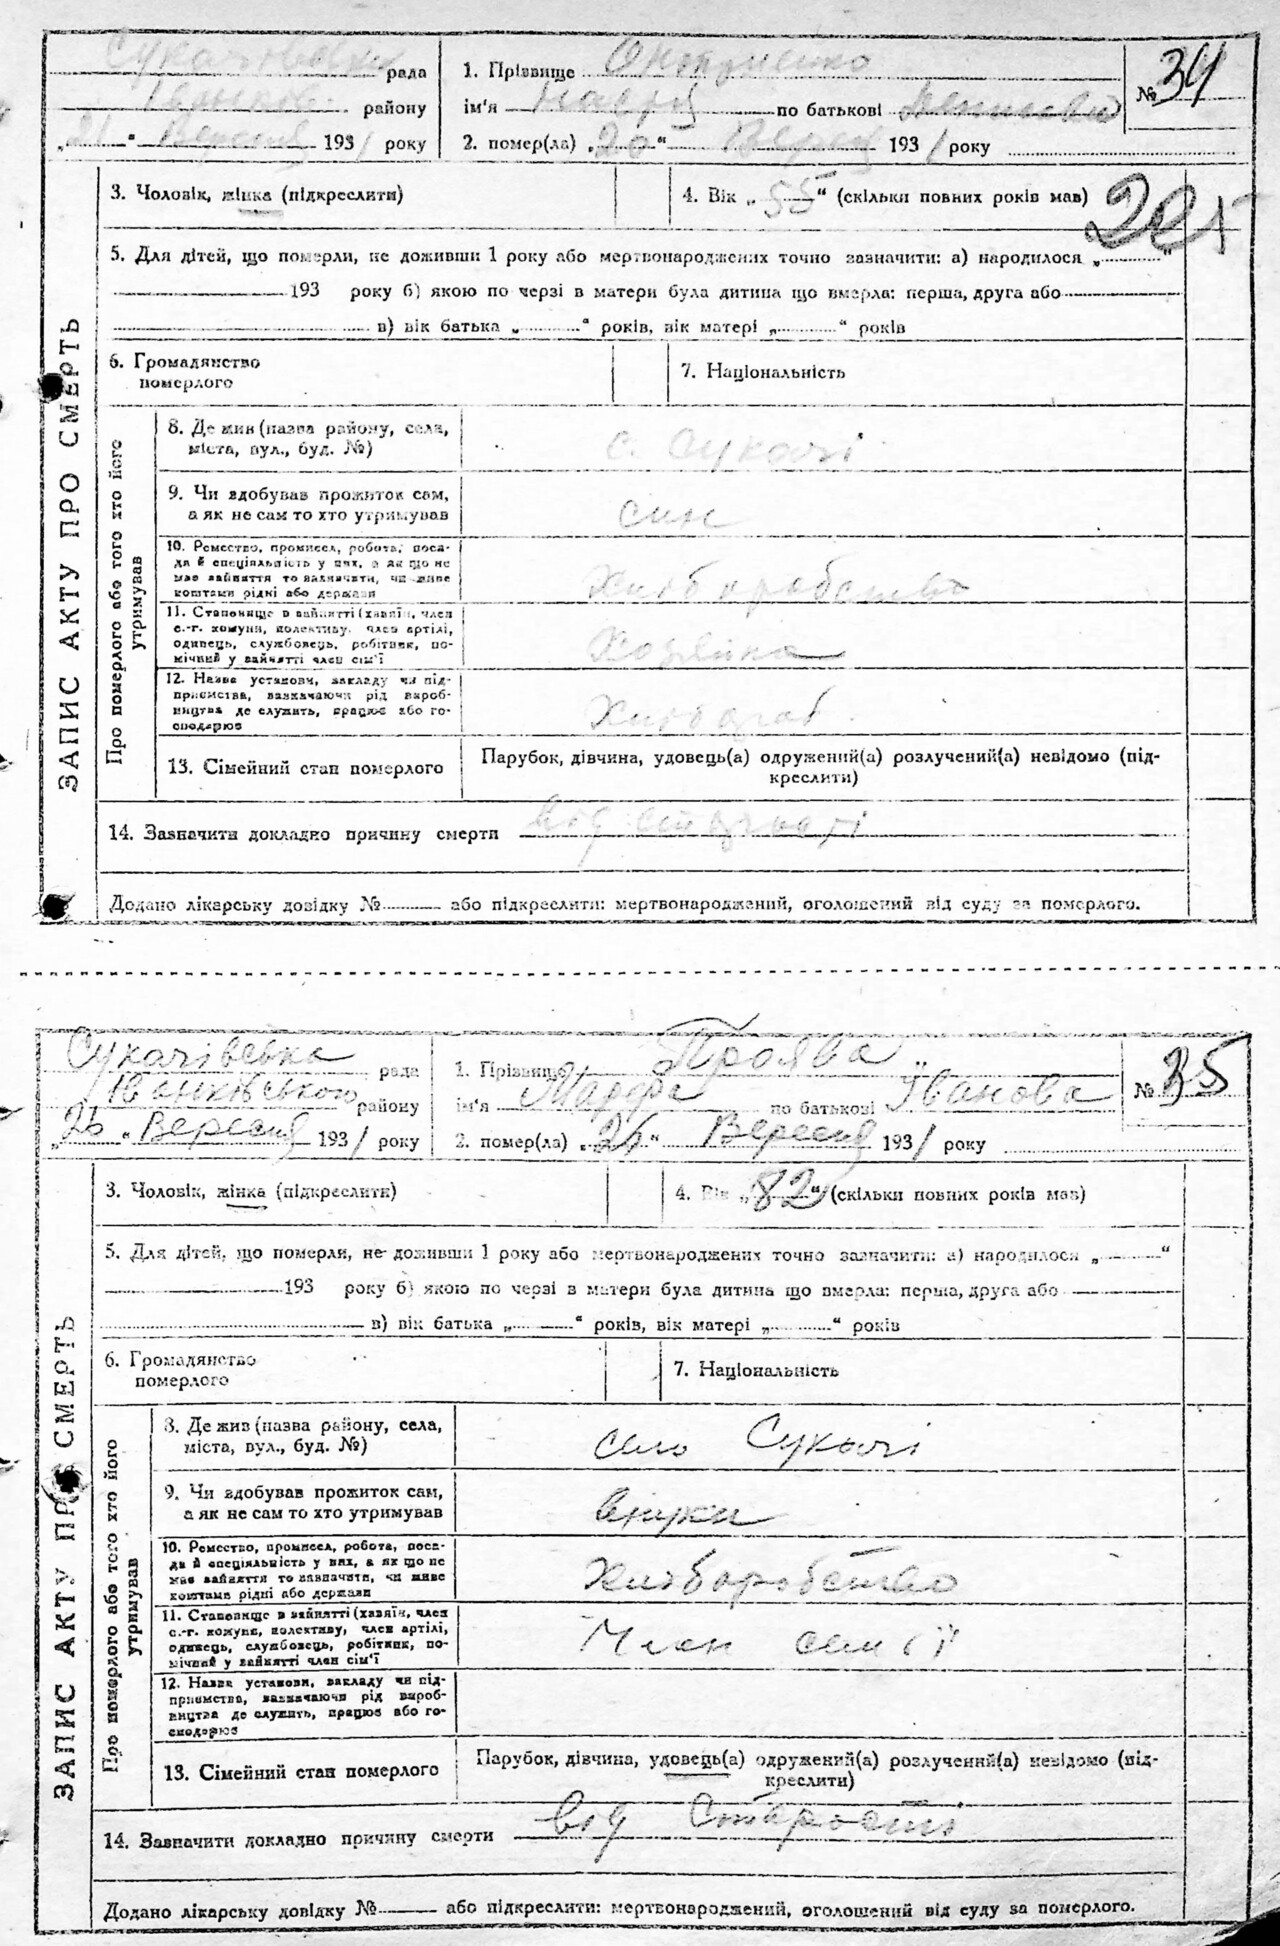 Сукачівська рада
Іванків. району
„21“ Вересня 1931 року
1. Прізвище
ім'я по батькові
2. помер(ла) „20“ Верес 1931 року
№ 34
ЗАПИС АКТУ ПРО СМЕРТЬ
3. Чоловік, жінка (підкреслити)
4. Вік „55“ (скільки повних років мав)
5. Для дітей, що померли, не доживши 1 року або мертвонароджених точно зазначити: а) народилося „ “
193 року б) якою по черзі в матери була дитина що вмерла: перша, друга або
в) вік батька „ “ років, вік матері „ “ років
6. Громадянство
померлого
7. Національність
Про померлого або того хто його
утримував
8. Де жив (назва району, села,
міста, вул., буд. №)
с. Сукачі
9. Чи здобував прожиток сам,
а як не сам то хто утримував
син
10. Ремество, промисел, робота, поса-
да й спеціяльність у них, а як що не
має зайняття то зазначити, чи живе
коштами рідні або держави
Хліборобство
11. Становище в зайнятті (хазяїн, член
с.-г. комуни, колективу, член артілі,
одинець, службовець, робітник, по-
мічний у зайнятті член сім'ї
Хозяїна
12. Назва установи, закладу чи під-
приємства, зазначаючи рід вироб-
ництва де служить, працює або го-
сподарює
13. Сімейний стан померлого
Парубок, дівчина, удовець(а) одружений(а) розлучений(а) невідомо (під-
креслити)
14. Зазначити докладно причину смерти від старості
Додано лікарську довідку № або підкреслити: мертвонароджений, оголошений від суду за померлого.
Сукачівська рада
Іванківського району
„26“ Вересня 1931 року
1. Прізвище Проява
ім'я Марфа по батькові Іванова
2. помер(ла) „26“ Вересня 1931 року
№ 35
ЗАПИС АКТУ ПРО СМЕРТЬ
3. Чоловік, жінка (підкреслити)
4. Вік „82“ (скільки повних років мав)
5. Для дітей, що померли, не доживши 1 року або мертвонароджених точно зазначити: а) народилося „ “
193 року б) якою по черзі в матери була дитина що вмерла: перша, друга або
в) вік батька „ “ років, вік матері „ “ років
6. Громадянство
померлого
7. Національність
Про померлого або того хто його
утримував
8. Де жив (назва району, села,
міста, вул., буд. №)
село Сукачі
9. Чи здобував прожиток сам,
а як не сам то хто утримував
внуки
10. Ремество, промисел, робота, поса-
да й спеціяльність у них, а як що не
має зайняття то зазначити, чи живе
коштами рідні або держави
Хліборобство
11. Становище в зайнятті (хазяїн, член
с.-г. комуни, колективу, член артілі,
одинець, службовець, робітник, по-
мічний у зайнятті член сім'ї
Член сем'ї
12. Назва установи, закладу чи під-
приємства, зазначаючи рід вироб-
ництва де служить, працює або го-
сподарює
13. Сімейний стан померлого
Парубок, дівчина, удовець(а) одружений(а) розлучений(а) невідомо (під-
креслити)
14. Зазначити докладно причину смерти від старості
Додано лікарську довідку № або підкреслити: мертвонароджений, оголошений від суду за померлого.